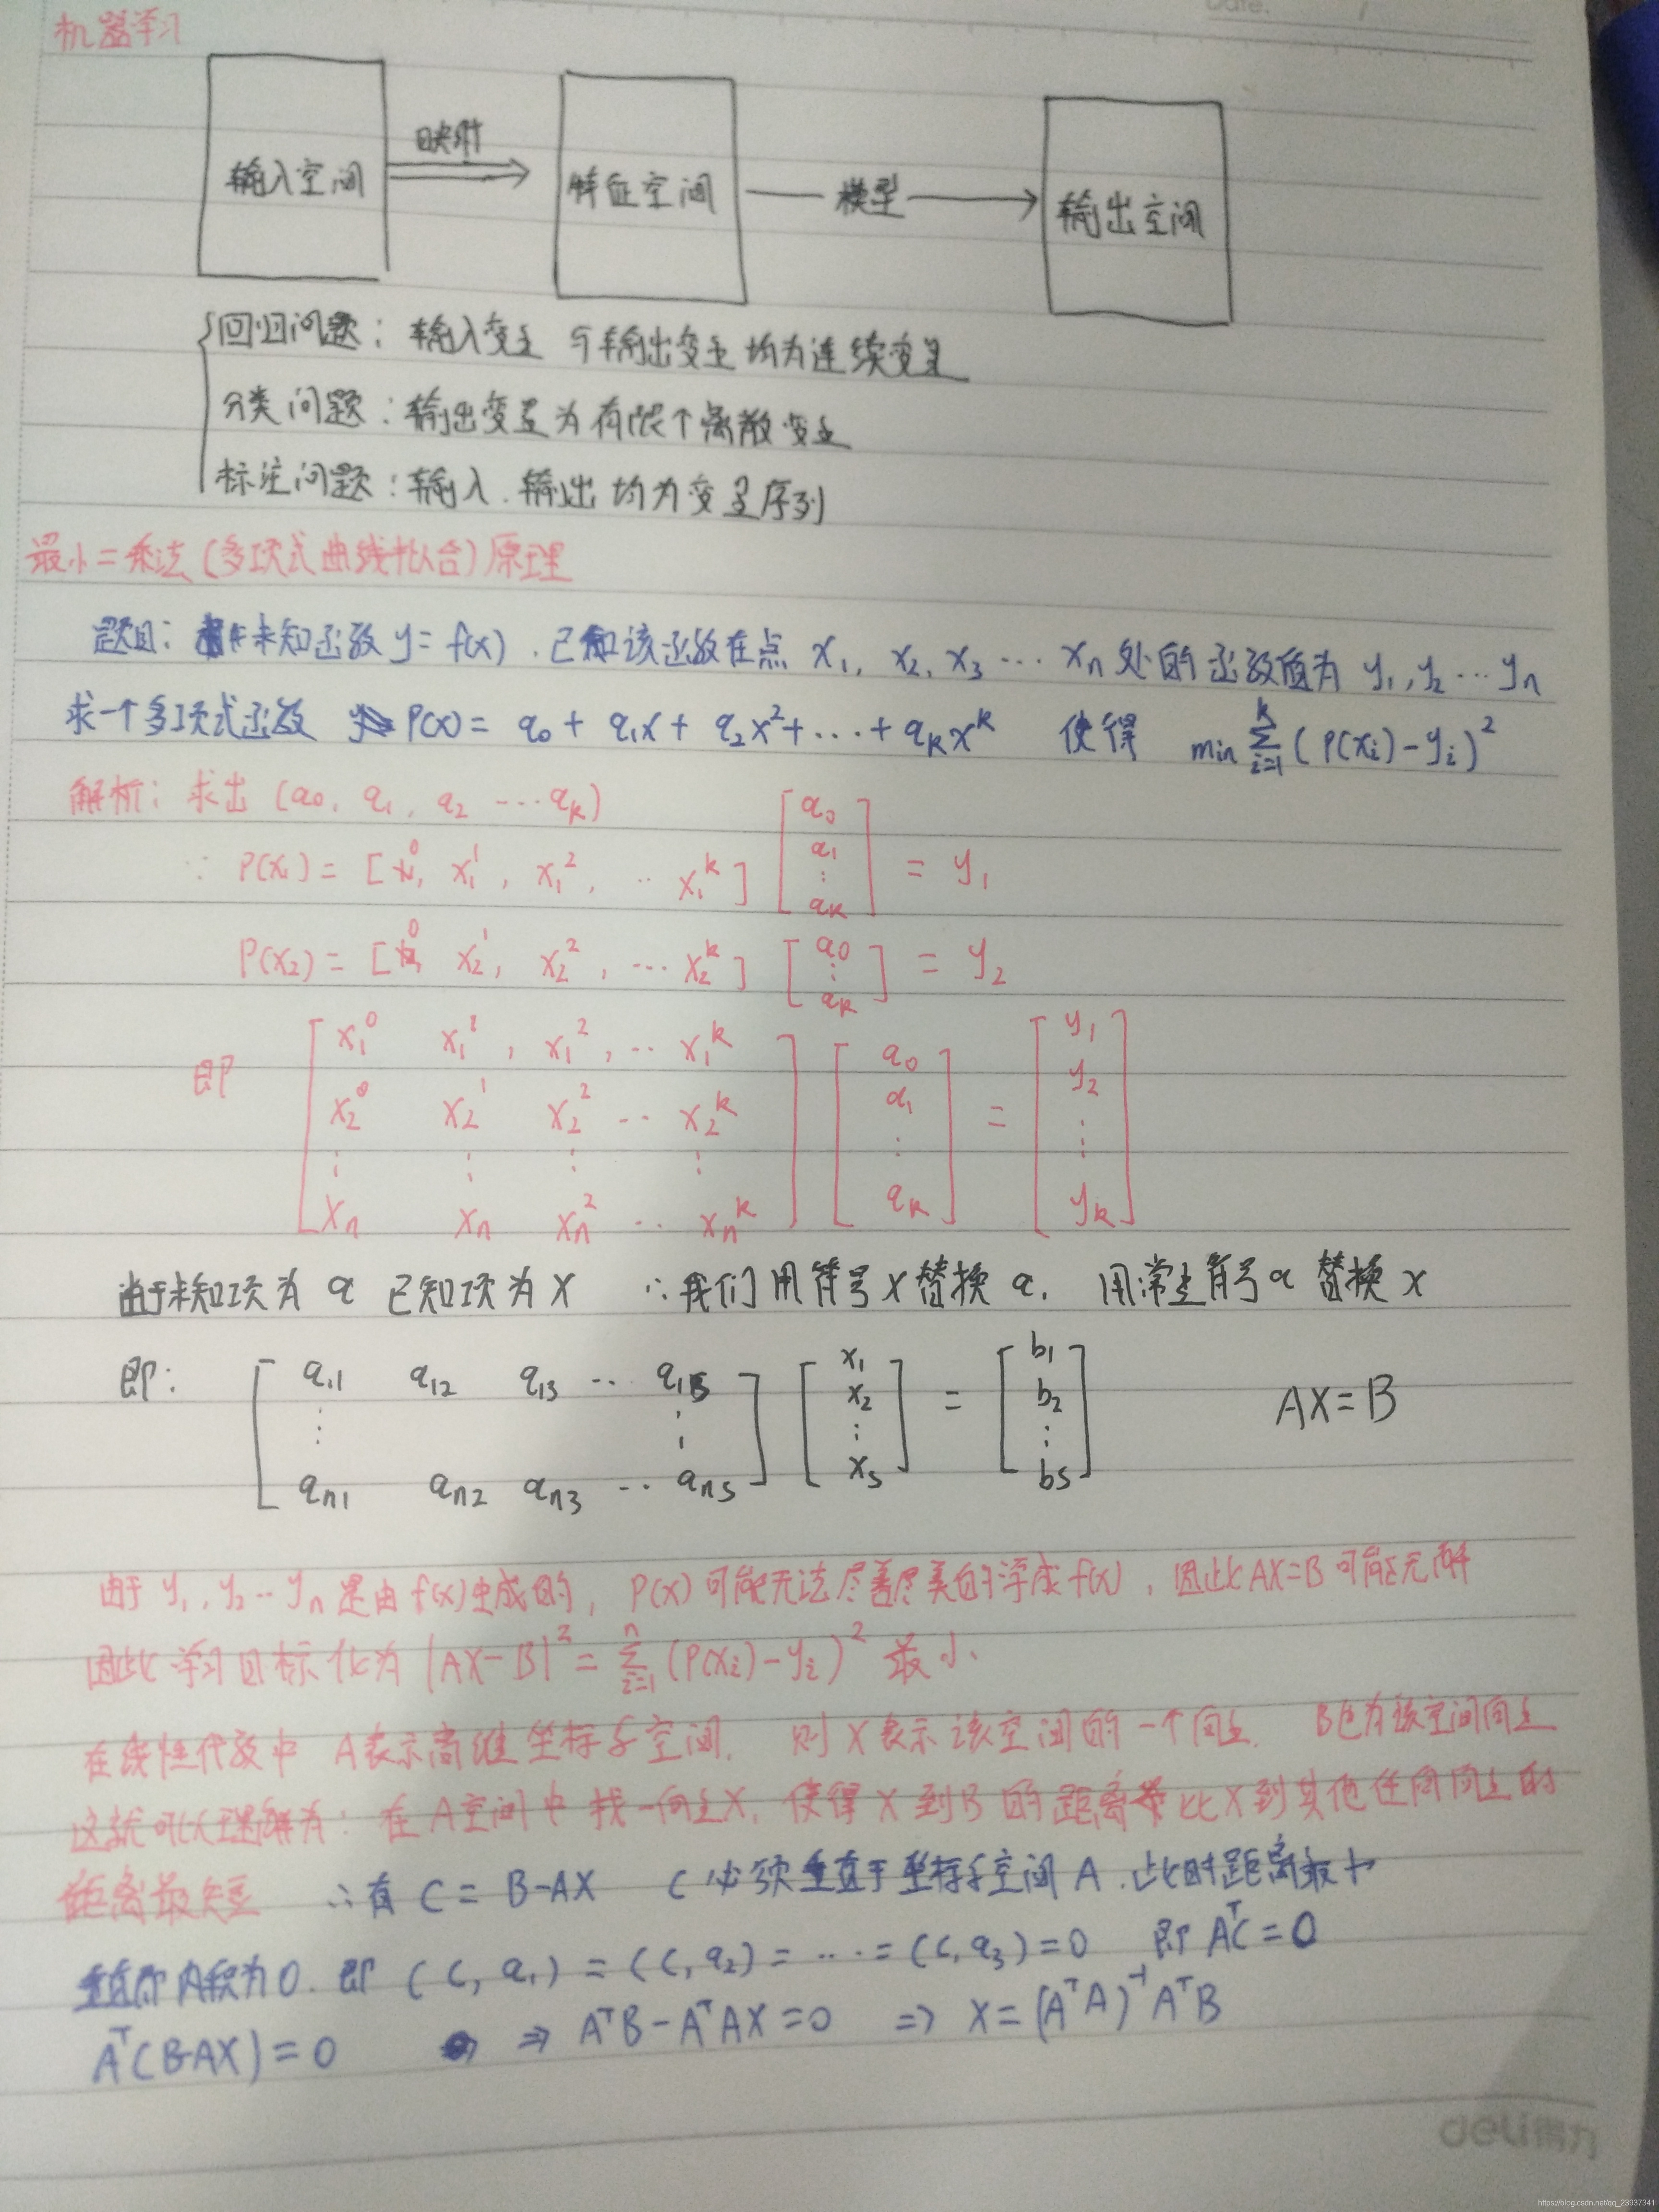 Date. /
机器学习
输入空间 映射 特征空间 模型 输出空间
回归问题: 输入变量 与输出变量 均为连续变量
分类问题: 输出变量为有限个离散变量
标注问题: 输入.输出 均为变量序列
最小二乘法(多项式曲线拟合)原理
题目: 未知函数 y = f(x). 已知该函数在点 x₁, x₂, x₃ ⋯ xₙ 处的函数值为 y₁, y₂ ⋯ yₙ
求一个多项式函数 P(x) = a₀ + a₁x + a₂x² + ⋯ + aₖxᵏ 使得 min Σᵢ₌₁ᵏ (P(xᵢ) - yᵢ)²
解析: 求出 (a₀, a₁, a₂ ⋯ aₖ)
∵ P(x₁) = [x₁⁰, x₁¹, x₁², ⋯ x₁ᵏ] [a₀ a₁ ⋮ aₖ] = y₁
P(x₂) = [x₂⁰, x₂¹, x₂², ⋯ x₂ᵏ] [a₀ ⋮ aₖ] = y₂
x₁⁰ x₁¹, x₁², ⋯ x₁ᵏ a₀ y₁
即 x₂⁰ x₂¹ x₂² ⋯ x₂ᵏ a₁ = y₂
⋮ ⋮ ⋮ ⋮ ⋮ ⋮
xₙ xₙ xₙ² ⋯ xₙᵏ aₖ yₖ
由于未知项为 a 已知项为 x ∴ 我们用符号 x 替换 a. 用常量符号 a 替换 x
即: a₁₁ a₁₂ a₁₃ ⋯ a₁s x₁ x₂ = b₁ b₂ AX = B
⋮ ⋮ ⋮ ⋮
aₙ₁ aₙ₂ aₙ₃ ⋯ aₙs xs bs
由于 y₁, y₂ ⋯ yₙ 是由 f(x)生成的, P(x) 可能无法尽善尽美的 成 f(x), 因此 AX=B 可能无解
因此 学习目标化为 |AX-B|² = Σᵢ₌₁ⁿ (P(xᵢ) - yᵢ)² 最小.
在线性代数中 A表示高维坐标子空间. 则 X表示该空间的一个向量. B也为该空间向量
这就可以理解为: 在A空间中 找一向量X, 使得 X 到B 的距离 比X到其他任何向量的
距离最短 ∴有 C = B-AX C 必须垂直于坐标子空间 A. 此时距离最小
垂直即内积为0. 即 (C, a₁) = (C, a₂) = ⋯ = (C, a₃) = 0 即 AᵀC = 0
Aᵀ(B-AX) = 0 ⇒ AᵀB - AᵀAX = 0 ⇒ X = (AᵀA)⁻¹AᵀB
deli得力
https://blog.csdn.net/qq_23937341